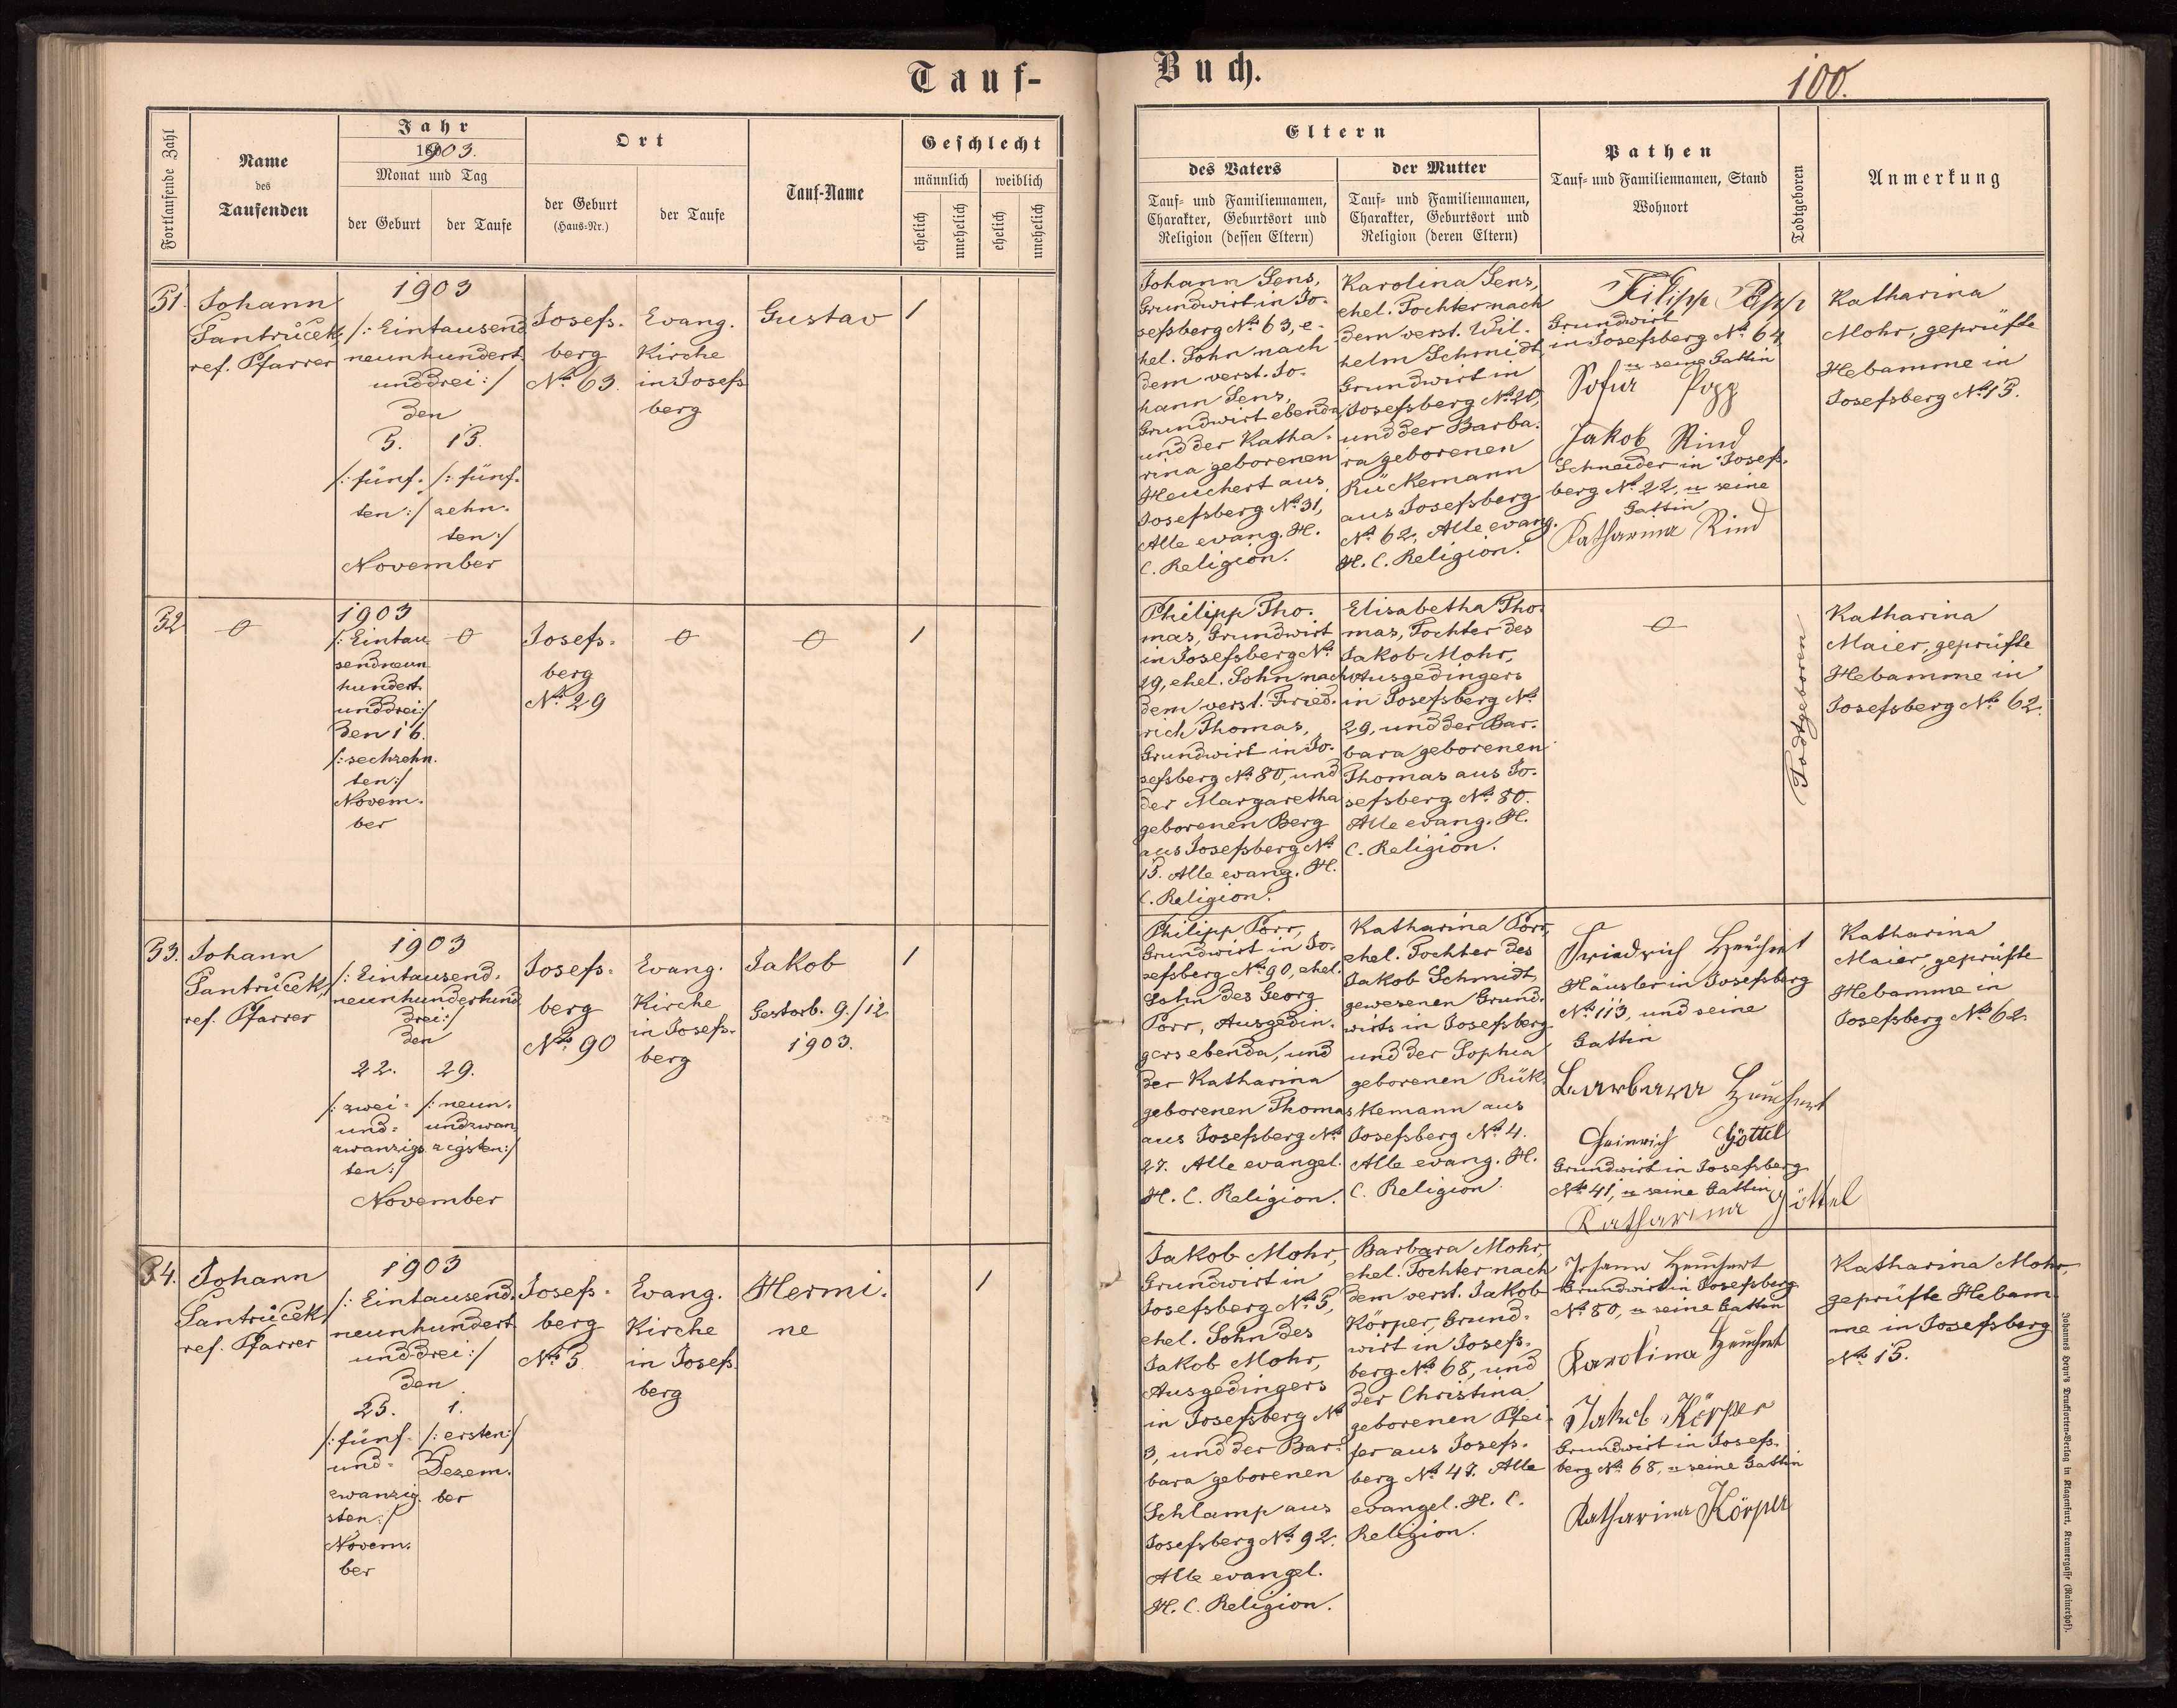 Tauf-
Buch.
100.
Fortlaufende Zahl
Name
des
Taufenden
Jahr
1903.
Monat und Tag
der Geburt
der Taufe
Ort
der Geburt
(Haus-Nr.)
der Taufe
Tauf-Name
Geschlecht
männlich
weiblich
ehelich
unehelich
ehelich
unehelich
Eltern
des Vaters
Tauf- und Familiennamen,
Charakter, Geburtsort und
Religion (dessen Eltern)
der Mutter
Tauf- und Familiennamen,
Charakter, Geburtsort und
Religion (deren Eltern)
Pathen
Tauf- und Familiennamen, Stand
Wohnort
Todtgeboren
Anmerkung
51.
Johann
Santrůček,
ref. Pfarrer
1903
/: Eintausend
neunhundert
unddrei :/
den
5.
15.
/: fünf-
ten :/
/: fünf-
zehn-
ten :/
November
Josefs-
berg
No. 63.
Evang.
Kirche
in Josefs
berg
Gustav
1
Johann Lens,
Grundwirt in Jo-
sefsberg No. 63, e-
hel. Sohn nach
dem verst. Jo-
hann Lens,
Grundwirt ebenda,
und der Katha-
rina geborenen
Heuchert aus
Josefsberg No. 31,
Alle evang. H.
C. Religion.
Karolina Lens,
ehel. Tochter nach
dem verst. Wil-
helm Schmidt,
Grundwirt in
Josefsberg No. 20,
und der Barba-
ra geborenen
Rückemann
aus Josefsberg
No. 62, Alle evang.
H. C. Religion.
Filipp Popp
Grundwirt
in Josefsberg No. 64,
u seine Gattin
Sofia Popp
Jakob Rind
Schneider in Josefs-
berg No. 22, u seine
Gattin
Katharina Rind
Katharina
Mohr, geprüfte
Hebamme in
Josefsberg No. 15.
52
0
1903
/: Eintau
sendneun
hundert
unddrei :/
den 16.
/: sechzehn-
ten :/
Novem-
ber
0
Josefs-
berg
No. 29
0
0
1
Philipp Tho-
mas, Grundwirt
in Josefsberg No.
29, ehel. Sohn nach
dem verst. Fried-
rich Thomas,
Grundwirt in Jo-
sefsberg No. 80, und
der Margaretha
geborenen Berg
aus Josefsberg No.
15. Alle evang. H.
C. Religion.
Elisabetha Tho-
mas, Tochter des
Jakob Mohr,
Ausgedingers
in Josefsberg No.
29, und der Bar-
bara geborenen
Thomas aus Jo-
sefsberg No. 80.
Alle evang. H.
C. Religion.
0
Todtgeboren
Katharina
Maier, geprüfte
Hebamme in
Josefsberg No. 62.
53.
Johann
Santrůček,
ref. Pfarrer
1903
/: Eintausend-
neunhundertund
drei :/
den
22.
29.
/: zwei-
und-
zwanzigs
ten :/
/: neun-
undzwan
zigsten :/
November
Josefs-
berg
No. 90
Evang.
Kirche
in Josefs-
berg
Jakob
Gestorb. 9./12
1903.
1
Philipp Porr,
Grundwirt in Jo-
sefsberg No. 90, ehel.
Sohn des Georg
Porr, Ausgedin-
gers ebenda, und
der Katharina
geborenen Thomas
aus Josefsberg No.
27. Alle evangel.
H. C. Religion.
Katharina Porr,
ehel. Tochter des
Jakob Schmidt,
gewesenen Grund-
wirts in Josefsberg
und der Sophia
geborenen Rük-
kemann aus
Josefsberg No. 4.
Alle evang. H.
C. Religion.
Friedrich Heuchert
Häusler in Josefsberg
No. 113, und seine
Gattin
Barbara Heuchert
Heinrich Göttel
Grundwirt in Josefsberg
No. 41, u seine Gattin
Katharina Göttel
Katharina
Maier, geprüfte
Hebamme in
Josefsberg No. 62
54.
Johann
Santrůček,
ref. Pfarrer
1903
/: Eintausend-
neunhundert
unddrei :/
den
25.
1.
/: fünf-
und-
zwanzig-
sten :/
Novem-
ber
/: ersten :/
Dezem-
ber
Josefs-
berg
No. 5
Evang.
Kirche
in Josefs
berg
Hermi-
ne
1
Jakob Mohr,
Grundwirt in
Josefsberg No. 5,
ehel. Sohn des
Jakob Mohr,
Ausgedingers
in Josefsberg No.
3, und der Bar-
bara geborenen
Schlamp aus
Josefsberg No. 92.
Alle evangel.
H. C. Religion.
Barbara Mohr,
ehel. Tochter nach
dem verst. Jakob
Körper, Grund-
wirt in Josefs-
berg No. 68, und
der Christina
geborenen Pfei-
fer aus Josefs-
berg No. 47. Alle
evangel. H. C.
Religion.
Johann Heuchert
Grundwirt in Josefsberg
No. 80, u seine Gattin
Karolina Heuchert
Jakob Körper
Grundwirt in Josefs-
berg No. 68, u seine Gattin
Katharina Körper
Katharina Mohr,
geprüfte Hebam-
me in Josefsberg
No. 15.
Johannes Heyn's Drucksorten-Verlag in Klagenfurt, Kramergasse (Rainerhof).